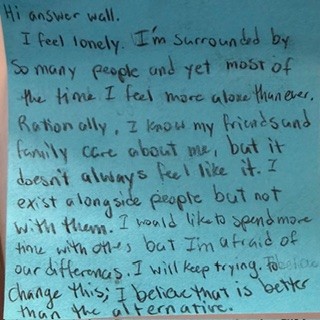 Hi answer wall.
I feel lonely. I'm surrounded by
so many people and yet most of
the time I feel more alone than ever.
Rationally, I know my friends and
family care about me, but it
doesn't always feel like it. I
exist alongside people but not
with them. I would like to spend more
time with others but I'm afraid of
our differences. I will keep trying. To
change this; I believe that is better
than the alternative.